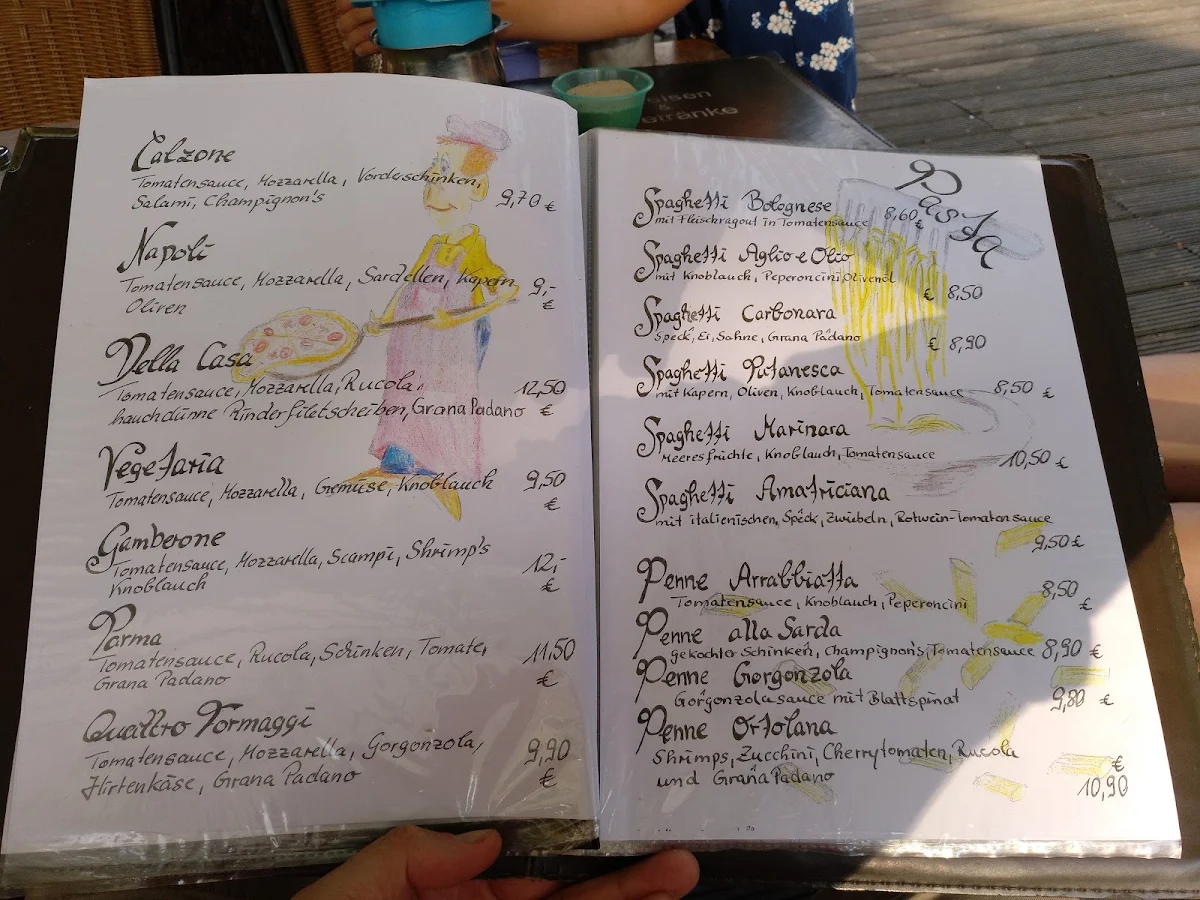 Calzone
Tomatensauce, Mozzarella, Vorderschinken,
Salami, Champignon's 9,70 €
Napoli
Tomatensauce, Mozzarella, Sardellen, Kapern
Oliven 9,- €
Della Casa
Tomatensauce, Mozzarella, Rucola, 12,50
hauchdünne Rinderfiletscheiben, Grana Padano €
Vegetaria
Tomatensauce, Mozzarella, Gemüse, Knoblauch 9,50
€
Gamberone
Tomatensauce, Mozzarella, Scampi, Shrimp's 12,-
Knoblauch €
Parma
Tomatensauce, Rucola, Schinken, Tomate, 11,50
Grana Padano €
Quattro Formaggi
Tomatensauce, Mozzarella, Gorgonzola, 9,90
Hirtenkäse, Grana Padano €
Pasta
Spaghetti Bolognese 8,60 €
mit Fleischragout in Tomatensauce
Spaghetti Aglio e Olio
mit Knoblauch, Peperoncini, Olivenöl € 8,50
Spaghetti Carbonara
Speck, Ei, Sahne, Grana Padano € 8,90
Spaghetti Putanesca
mit Kapern, Oliven, Knoblauch, Tomatensauce 8,50 €
Spaghetti Marinara
Meeresfrüchte, Knoblauch, Tomatensauce 10,50 €
Spaghetti Amatriciana
mit italienischen, Speck, Zwiebeln, Rotwein-Tomatensauce
9,50 €
Penne Arrabbiatta
Tomatensauce, Knoblauch, Peperoncini 8,50 €
Penne alla Sarda
gekochter Schinken, Champignon's, Tomatensauce 8,90 €
Penne Gorgonzola
Gorgonzolasauce mit Blattspinat 9,80 €
Penne Ortolana
Shrimps, Zucchini, Cherrytomaten, Rucola €
und Grana Padano 10,90